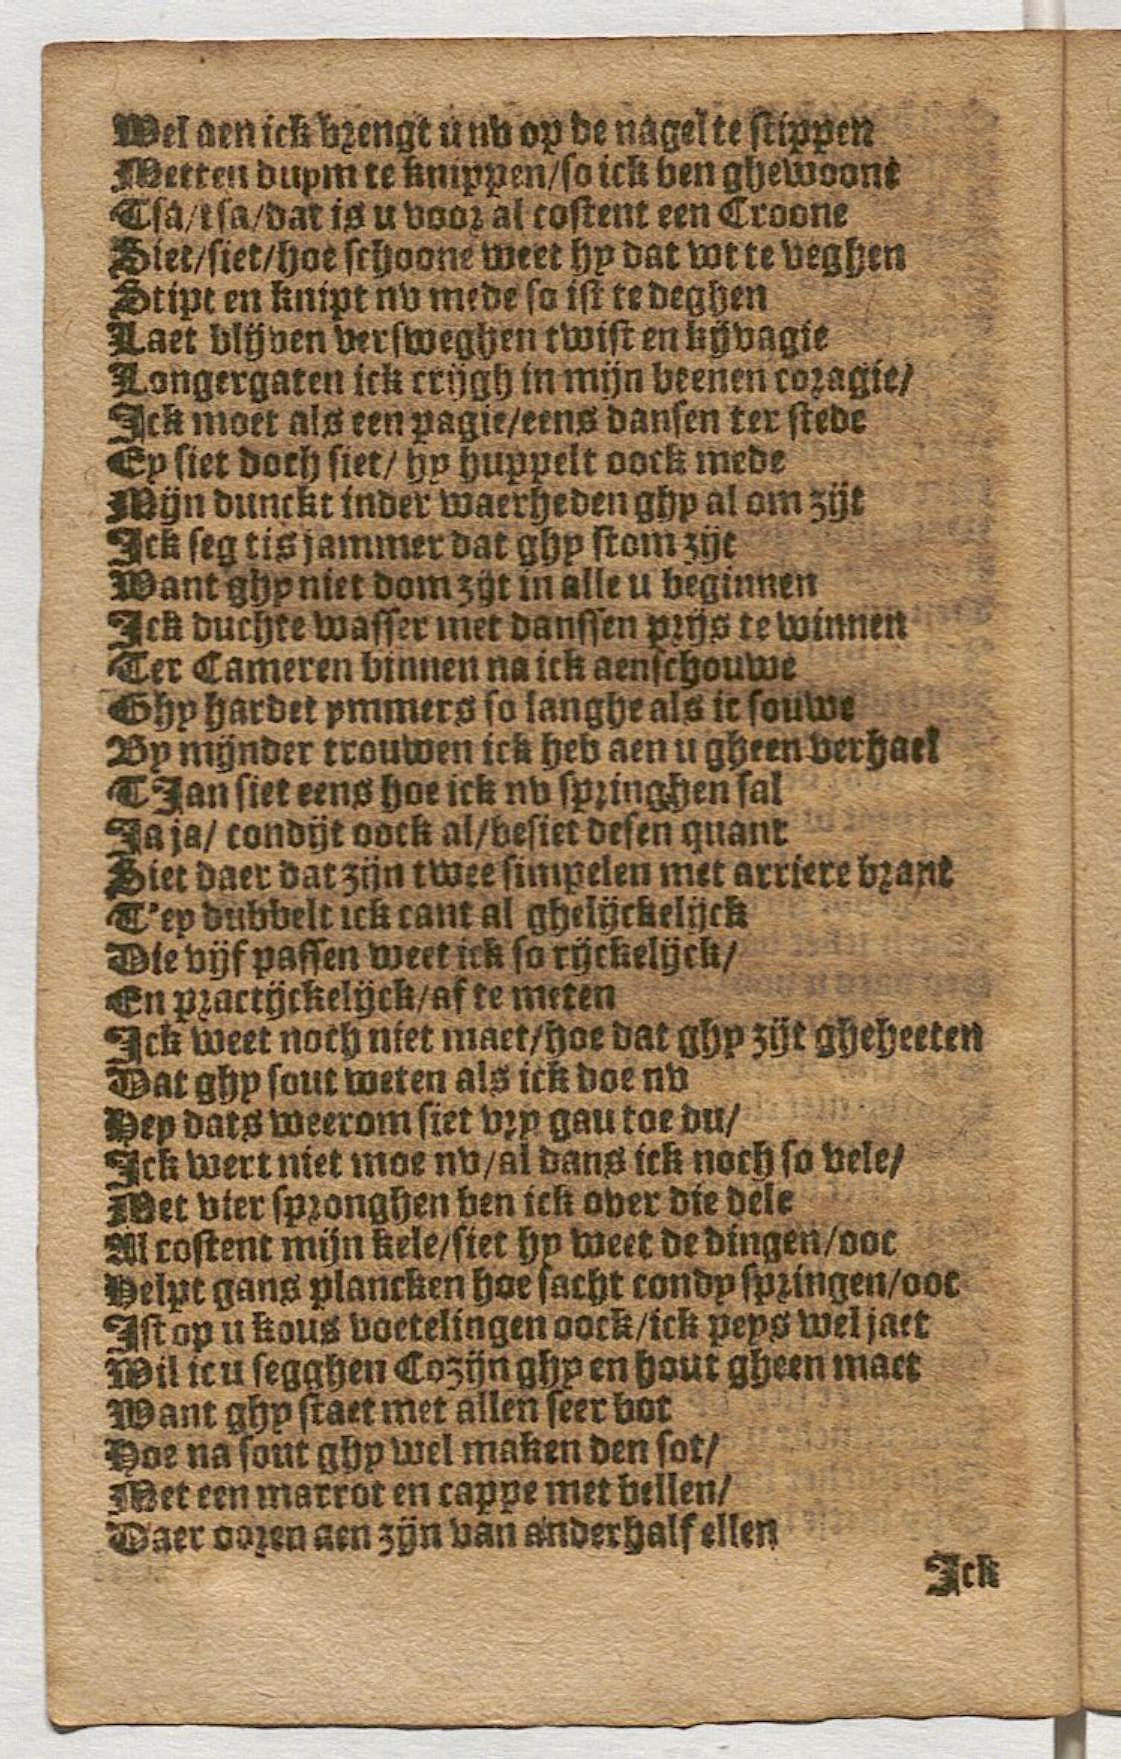 Wel aen ick brengt u nv op de nagel te stippen
Metten duym te knippen/so ick ben ghewoone
Tsa/tsa/dat is u voor al costent een Croone
Siet/siet/hoe schoone weet hy dat wt te veghen
Stipt en knipt nv mede so ist te deghen
Laet blijven versweghen twist en kijvagie
Longergaten ick crijgh in mijn beenen coragie/
Ick moet als een pagie/eens dansen ter stede
Ey siet doch siet/ hy huppelt oock mede
Mijn dunckt inder waerheden ghy al om zijt
Ick seg tis jammer dat ghy stom zijt
Want ghy niet dom zijt in alle u beginnen
Ick duchte wasser met danssen prijs te winnen
Ter Cameren binnen na ick aenschouwe
Ghy hardet ymmers so langhe als ic souwe
By mijnder trouwen ick heb aen u gheen verhael
T'Jan siet eens hoe ick nv springhen sal
Ja ja/ condijt oock al/besiet desen quant
Siet daer dat zijn twee simpelen met arriere brant
T'ey dubbelt ick cant al ghelijckelijck
Die vijf passen weet ick so rijckelijck/
En practijckelijck/af te meten
Ick weet noch niet maet/hoe dat ghy zijt gheheeten
Dat ghy sout weten als ick doe nv
Hey dats weerom siet vry gau toe du/
Ick wert niet moe nv/al dans ick noch so vele/
Met vier spronghen ben ick over die dele
Al costent mijn kele/siet hy weet de dingen/ooc
Helpt gans plancken hoe sacht condy springen/ooc
Ist op u kous voetelingen oock/ick peys wel jaet
Wil ic u segghen Cozijn ghy en hout gheen maet
Want ghy staet met allen seer bot
Hoe na sout ghy wel maken den sot/
Met een marrot en cappe met bellen/
Daer ooren aen zijn van anderhalf ellen
Ick